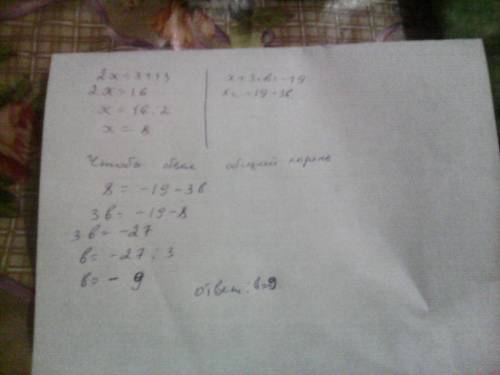 2x = 3+13
2x = 16
x = 16 : 2
x = 8
x + 3в = -19
x = -19 - 3в
Чтобы был общий корень
8 = -19 - 3в
3в = -19 - 8
3в = -27
в = -27 : 3
в = - 9
ответ: в=9